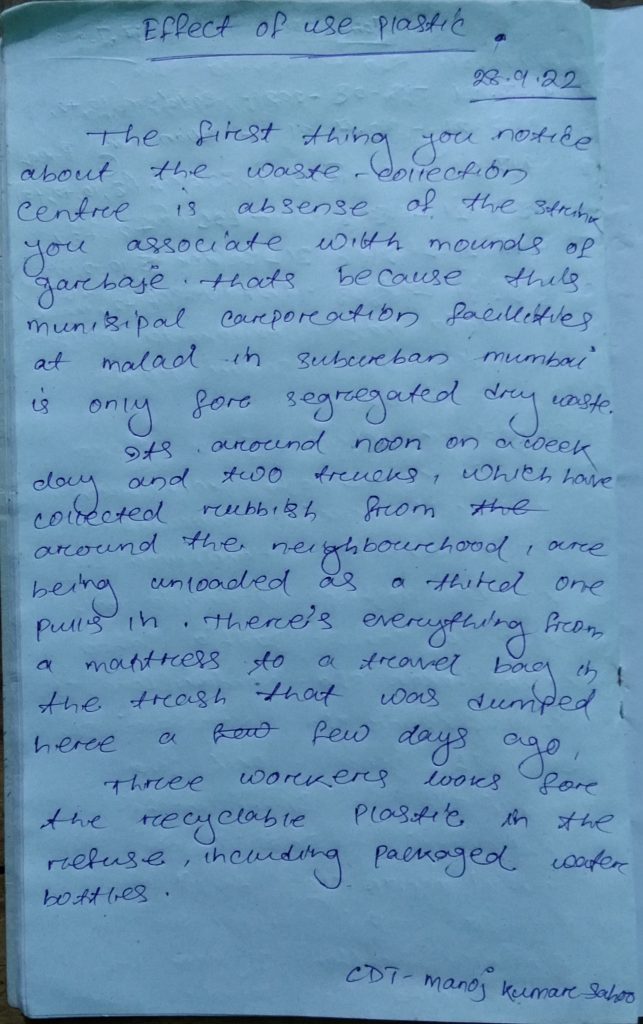 Effect of use plastic.
28.9.22
The first thing you notice
about the waste-collection
centre is absense of the strink
you associate with mounds of
garbaje. thats because this
munisipal carporation facilities
at malad in suburban mumbai
is only for segregated dry waste.
Its around noon on a week
day and two trucks, which have
collected rubbish from the
around the neighbourhood, are
being unloaded as a third one
pulls in. there's everything from
a mattress to a travel bag in
the trash that was dumped
here a few few days ago.
Three workers looks for
the recyclable plastic in the
refuse, including packaged water
bottles.
CDT- manoj kumar sahoo